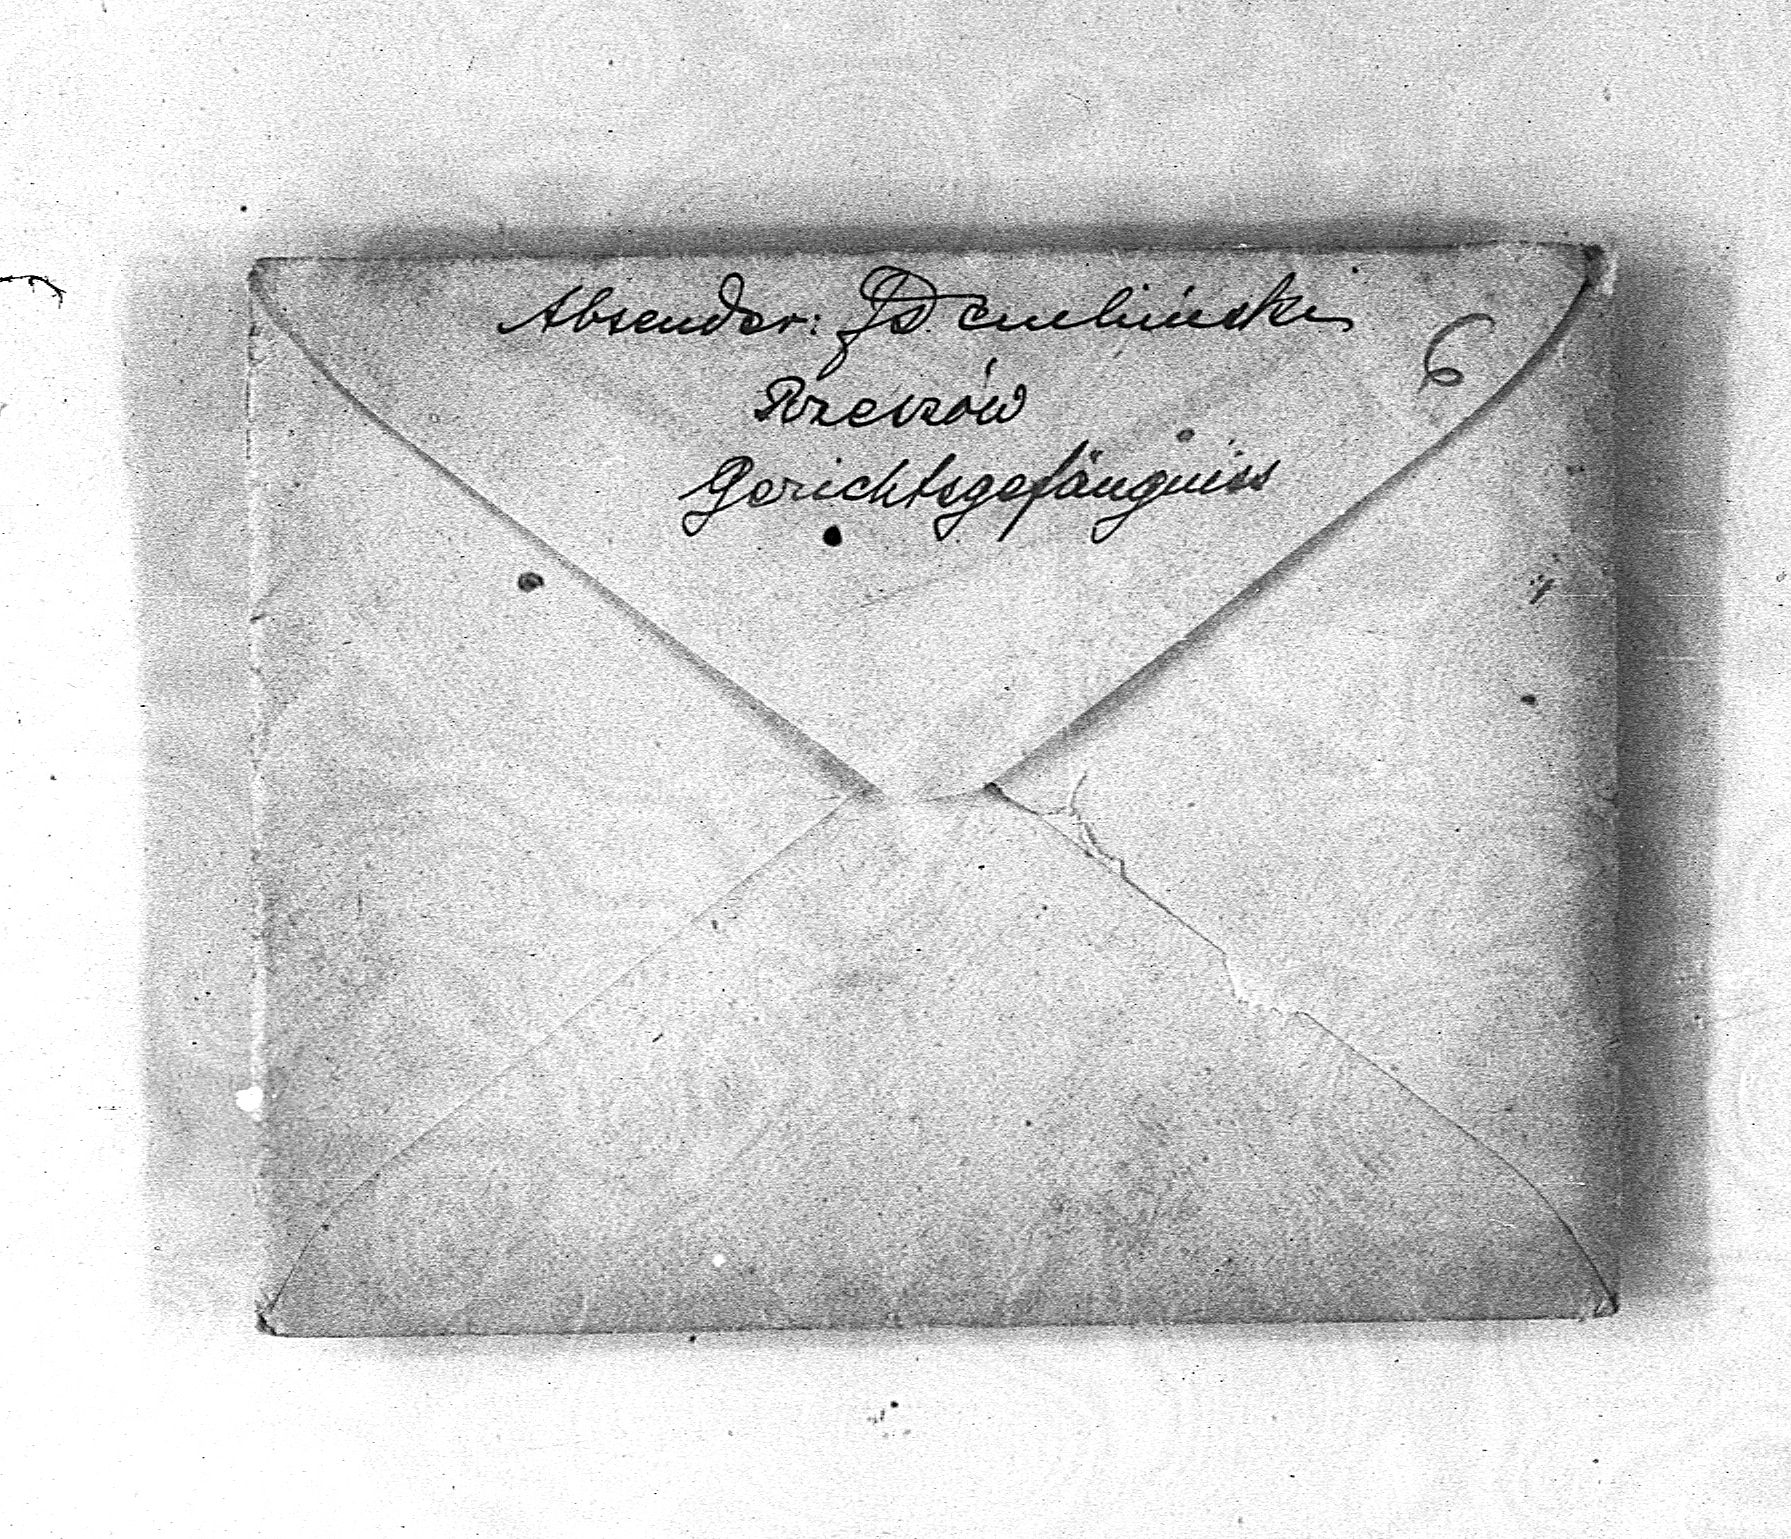 Absender: J. Dembiński
Rzeszów
Gerichtsgefängniss
6